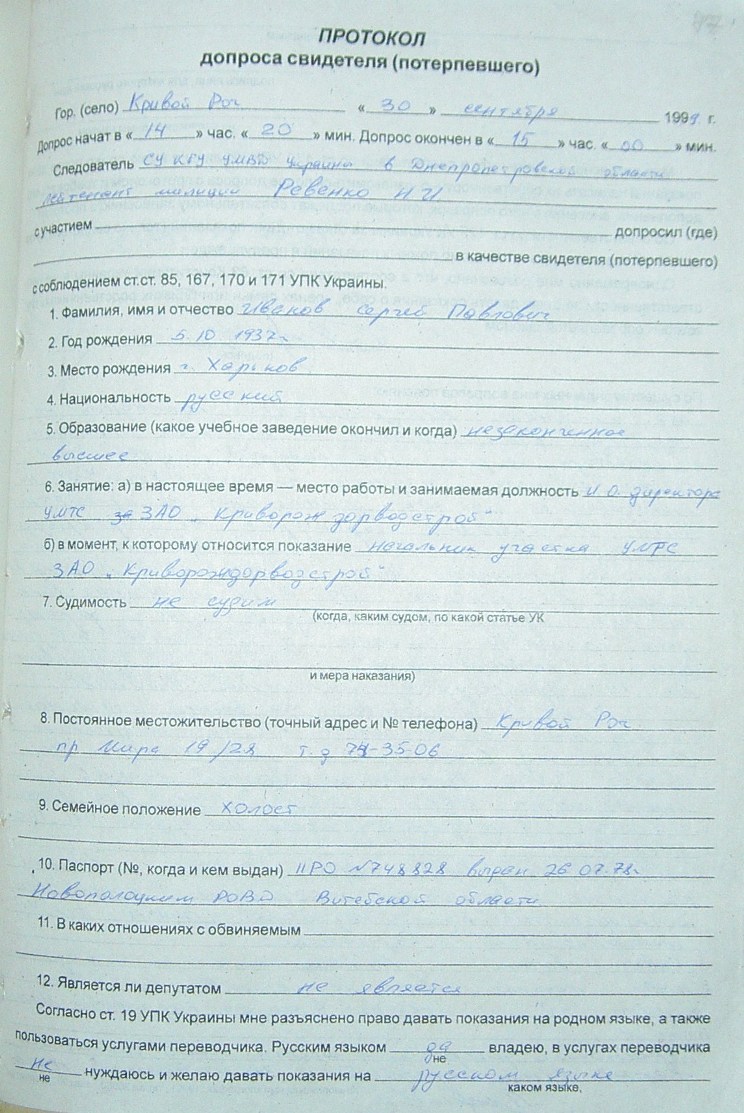 ПРОТОКОЛ
допроса свидетеля (потерпевшего)
Гор. (село) Кривой Рог « 30 » сентября 1999 г.
Допрос начат в « 14 » час. « 20 » мин. Допрос окончен в « 15 » час. « 00 » мин.
Следователь СУ КГУ УМВД Украины в Днепропетровской области
лейтенант милиции Ревенко Н И
с участием допросил (где)
в качестве свидетеля (потерпевшего)
с соблюдением ст.ст. 85, 167, 170 и 171 УПК Украины.
1. Фамилия, имя и отчество Иванов Сергей Павлович
2. Год рождения 5.10 1937г.
3. Место рождения г. Харьков
4. Национальность русский
5. Образование (какое учебное заведение окончил и когда) незаконченное
высшее
6. Занятие: а) в настоящее время — место работы и занимаемая должность И.О. директора
УМТС ЗАО „Криворождорводстрой"
б) в момент, к которому относится показание начальник участка УМТС
ЗАО „Криворождорводстрой"
7. Судимость не судим
(когда, каким судом, по какой статье УК
и мера наказания)
8. Постоянное местожительство (точный адрес и № телефона) Кривой Рог
пр Мира 19/28 т. д 74-35-06
9. Семейное положение холост
10. Паспорт (№, когда и кем выдан) II РО №748828 выдан 26.07.78г.
Новополоцким РОВД Витебской области
11. В каких отношениях с обвиняемым
12. Является ли депутатом не является
Согласно ст. 19 УПК Украины мне разъяснено право давать показания на родном языке, а также
пользоваться услугами переводчика. Русским языком да владею, в услугах переводчика
не
не нуждаюсь и желаю давать показания на русском языке
не
каком языке,